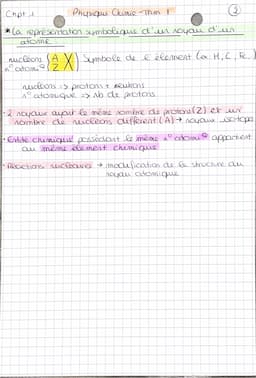 Chpt 1 Physique Chimie - thm 1 3
* La représentation symbolique d'un noyau d'un
atome
nucléons A X Symbole de l'élement (ex: H, C, Fe..)
n° atomique Z
nucléons => protons + neutrons
n° atomique => nb de protons
- 2 noyaux ayant le même nombre de protons (Z) et un
nombre de nucléons différent (A) → noyaux isotopes
- Entité chimique possédant le même n° atomique appartient
au même élement chimique
- Réactions nucléaires → modification de la structure du
noyau atomique